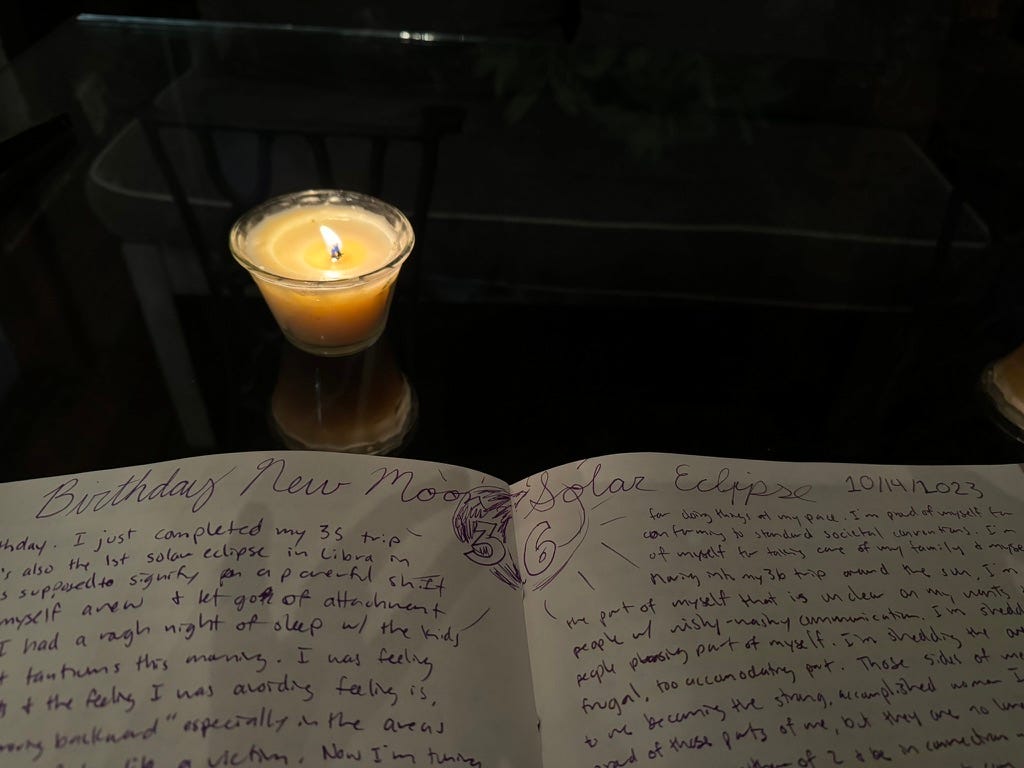 Birthday New Moon Solar Eclipse 10/14/2023
thday. I just completed my 35 trip
's also the 1st solar eclipse in Libra in
supposed to signify a powerful shift
myself anew & let go of attachment
I had a rough night of sleep w/ the kids
tantrums this morning. I was feeling
& the feeling I was avoiding feeling is,
moving backward" especially in the areas
like a victim. Now I'm turning
36
for doing things at my pace. I'm proud of myself for
conforming to standard societal conventions. I'm
of myself for taking care of my family & myse
Moving into my 36 trip around the sun, I'm
the part of myself that is unclear on my wants,
people w/ wishy-washy communication. I'm shedd
people pleasing part of myself. I'm shedding the
frugal, too accomodating part. Those sides of me
to me becoming the strong, accomplished woman I
of those parts of me, but they are no
of 2 & be in connection